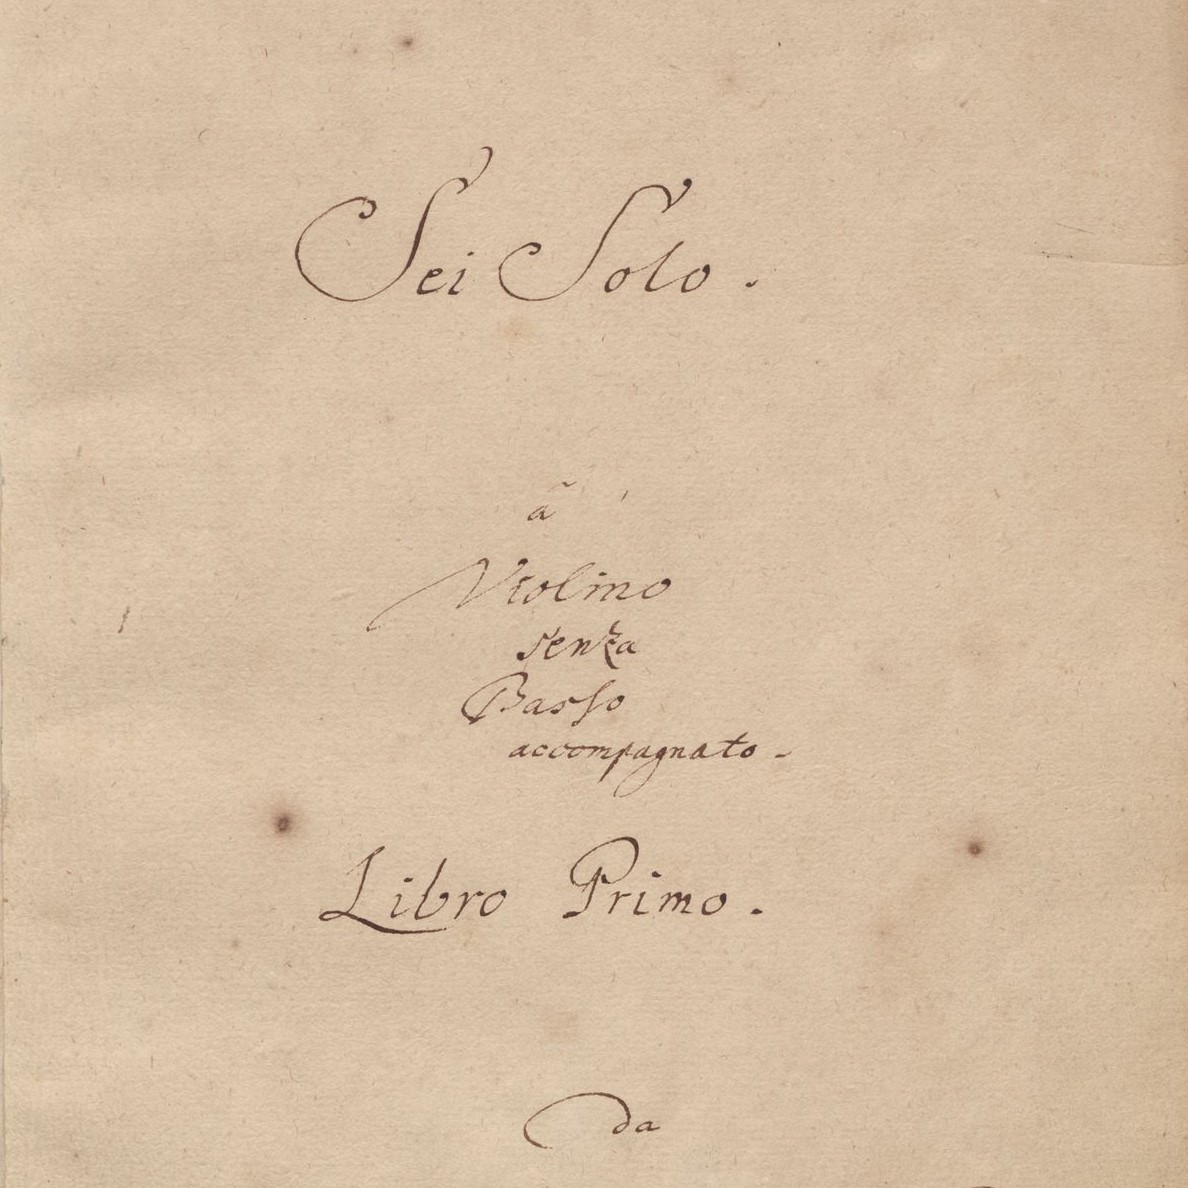 Sei Solo.
ã
Violino
senza
Basso
accompagnato.
Libro Primo.
da